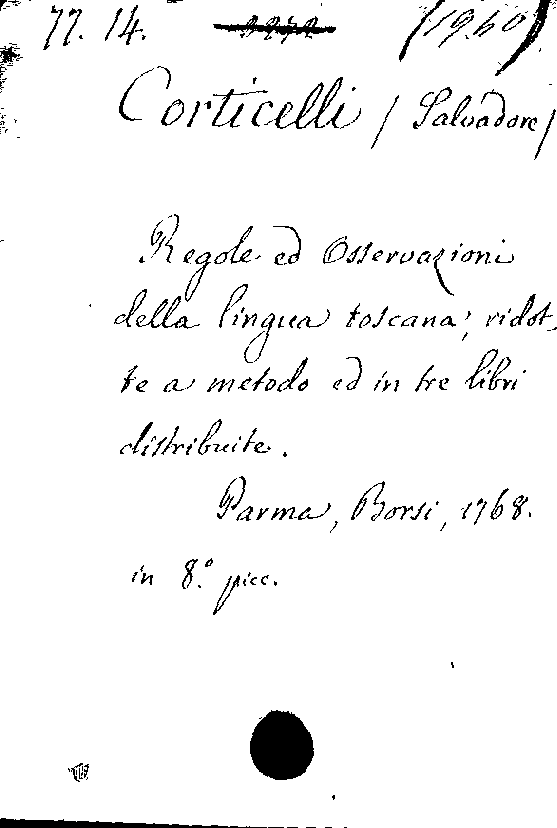 77. 14. (1960)
Corticelli / Salvadore /
Regole ed Osservazioni
della lingua toscana; ridot-
te a metodo ed in tre libri
distribuite.
Parma, Borsi, 1768.
in 8.° picc.